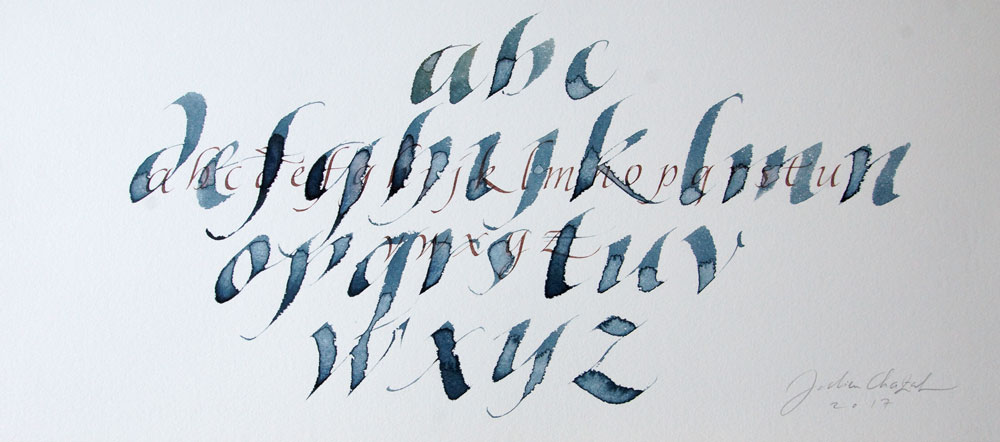 abc
defghijklmn
abcdefghijklmnopqrstu
opqrstuv
vwxyz
wxyz
2017